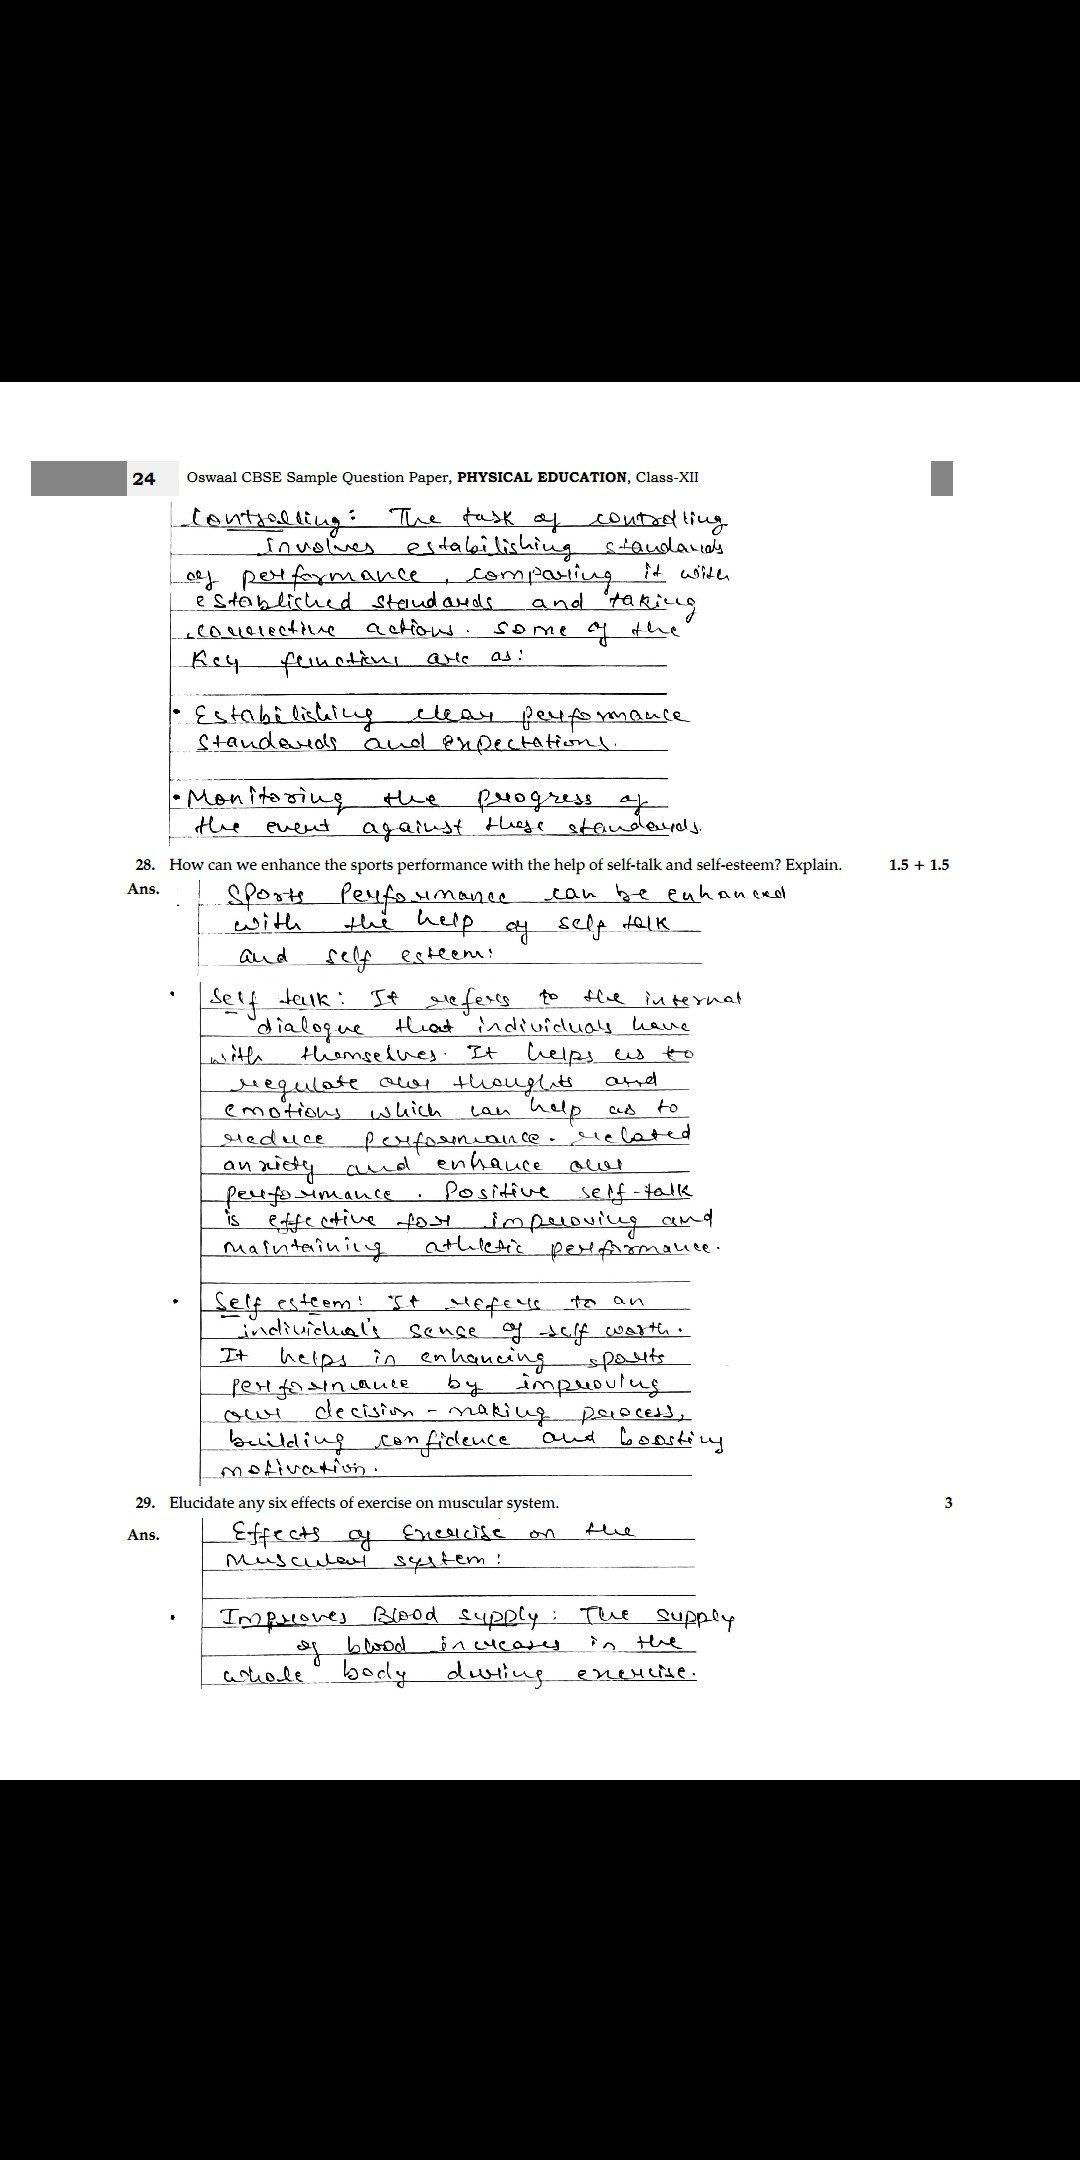 24 Oswaal CBSE Sample Question Paper, PHYSICAL EDUCATION, Class-XII
Controlling: The task of controlling
involves estabilishing standards
of performance, comparing it with
established standards and taking
corrective actions. Some of the
Key functions are as:
• Estabilishing clear performance
standards and expectations.
• Monitoring the progress of
the event against these standards.
28. How can we enhance the sports performance with the help of self-talk and self-esteem? Explain. 1.5 + 1.5
Ans. Sports Performance can be enhanced
with the help of self talk
and self esteem:
• Self talk: It refers to the internal
dialogue that individuals have
with themselves. It helps us to
regulate our thoughts and
emotions which can help us to
reduce performance-related
anxiety and enhance our
performance. Positive self-talk
is effective for improving and
maintaining athletic performance.
• Self esteem: It refers to an
individual's sense of self worth.
It helps in enhancing sports
performance by improving
our decision-making process,
building confidence and boosting
motivation.
29. Elucidate any six effects of exercise on muscular system. 3
Ans. Effects of Exercise on the
Muscular system:
• Improves Blood supply: The supply
of blood increases in the
whole body during exercise.